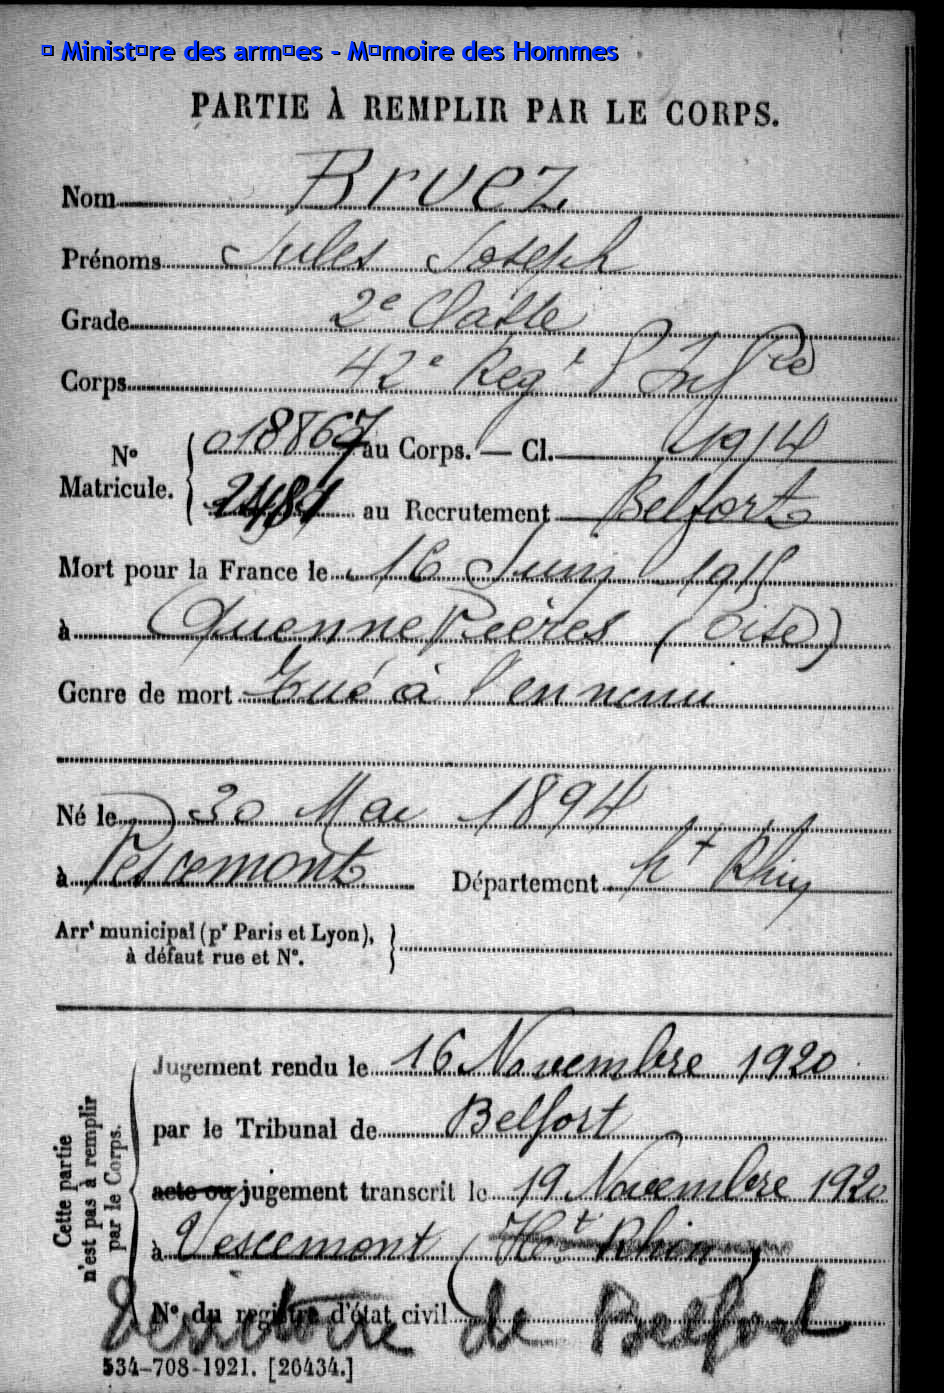 © Ministère des armées - Mémoire des Hommes
PARTIE À REMPLIR PAR LE CORPS.
Nom Bruez
Prénoms Jules Joseph
Grade 2e Classe
Corps 42e Régt d'Infie
No Matricule. 018867 au Corps. — Cl. 1914
au Recrutement Belfort
Mort pour la France le 16 Juin 1915
à Quennevières (Oise)
Genre de mort Tué à l'ennemi
Né le 30 Mai 1894
à Vescemont Département Ht Rhin
Arrt municipal (pr Paris et Lyon),
à défaut rue et N°.
Cette partie n'est pas à remplir par le Corps.
Jugement rendu le 16 Novembre 1920
par le Tribunal de Belfort
acte ou jugement transcrit le 19 Novembre 1920
à Vescemont (Ht Rhin)
N° du registre d'état civil
Territoire de Belfort
534-708-1921. [26434.]